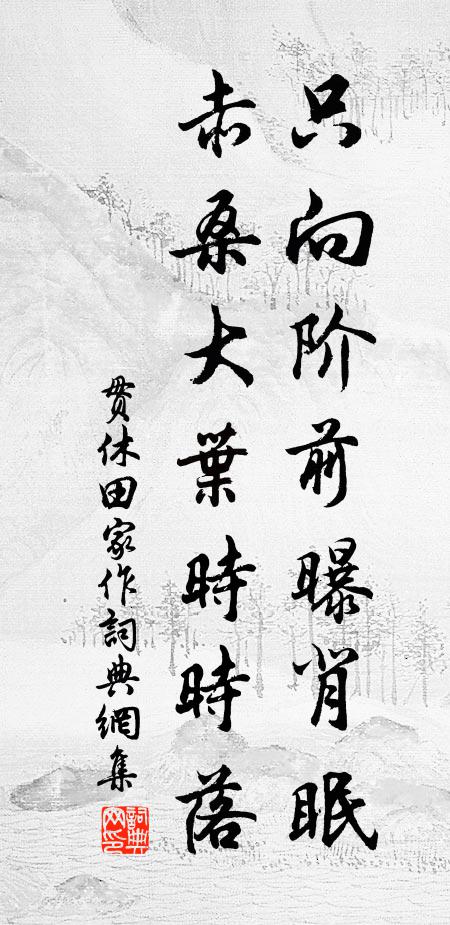 只向阶前曝背眠
赤桑大葉時時落
貫休田家作詞典網集
詞典网印